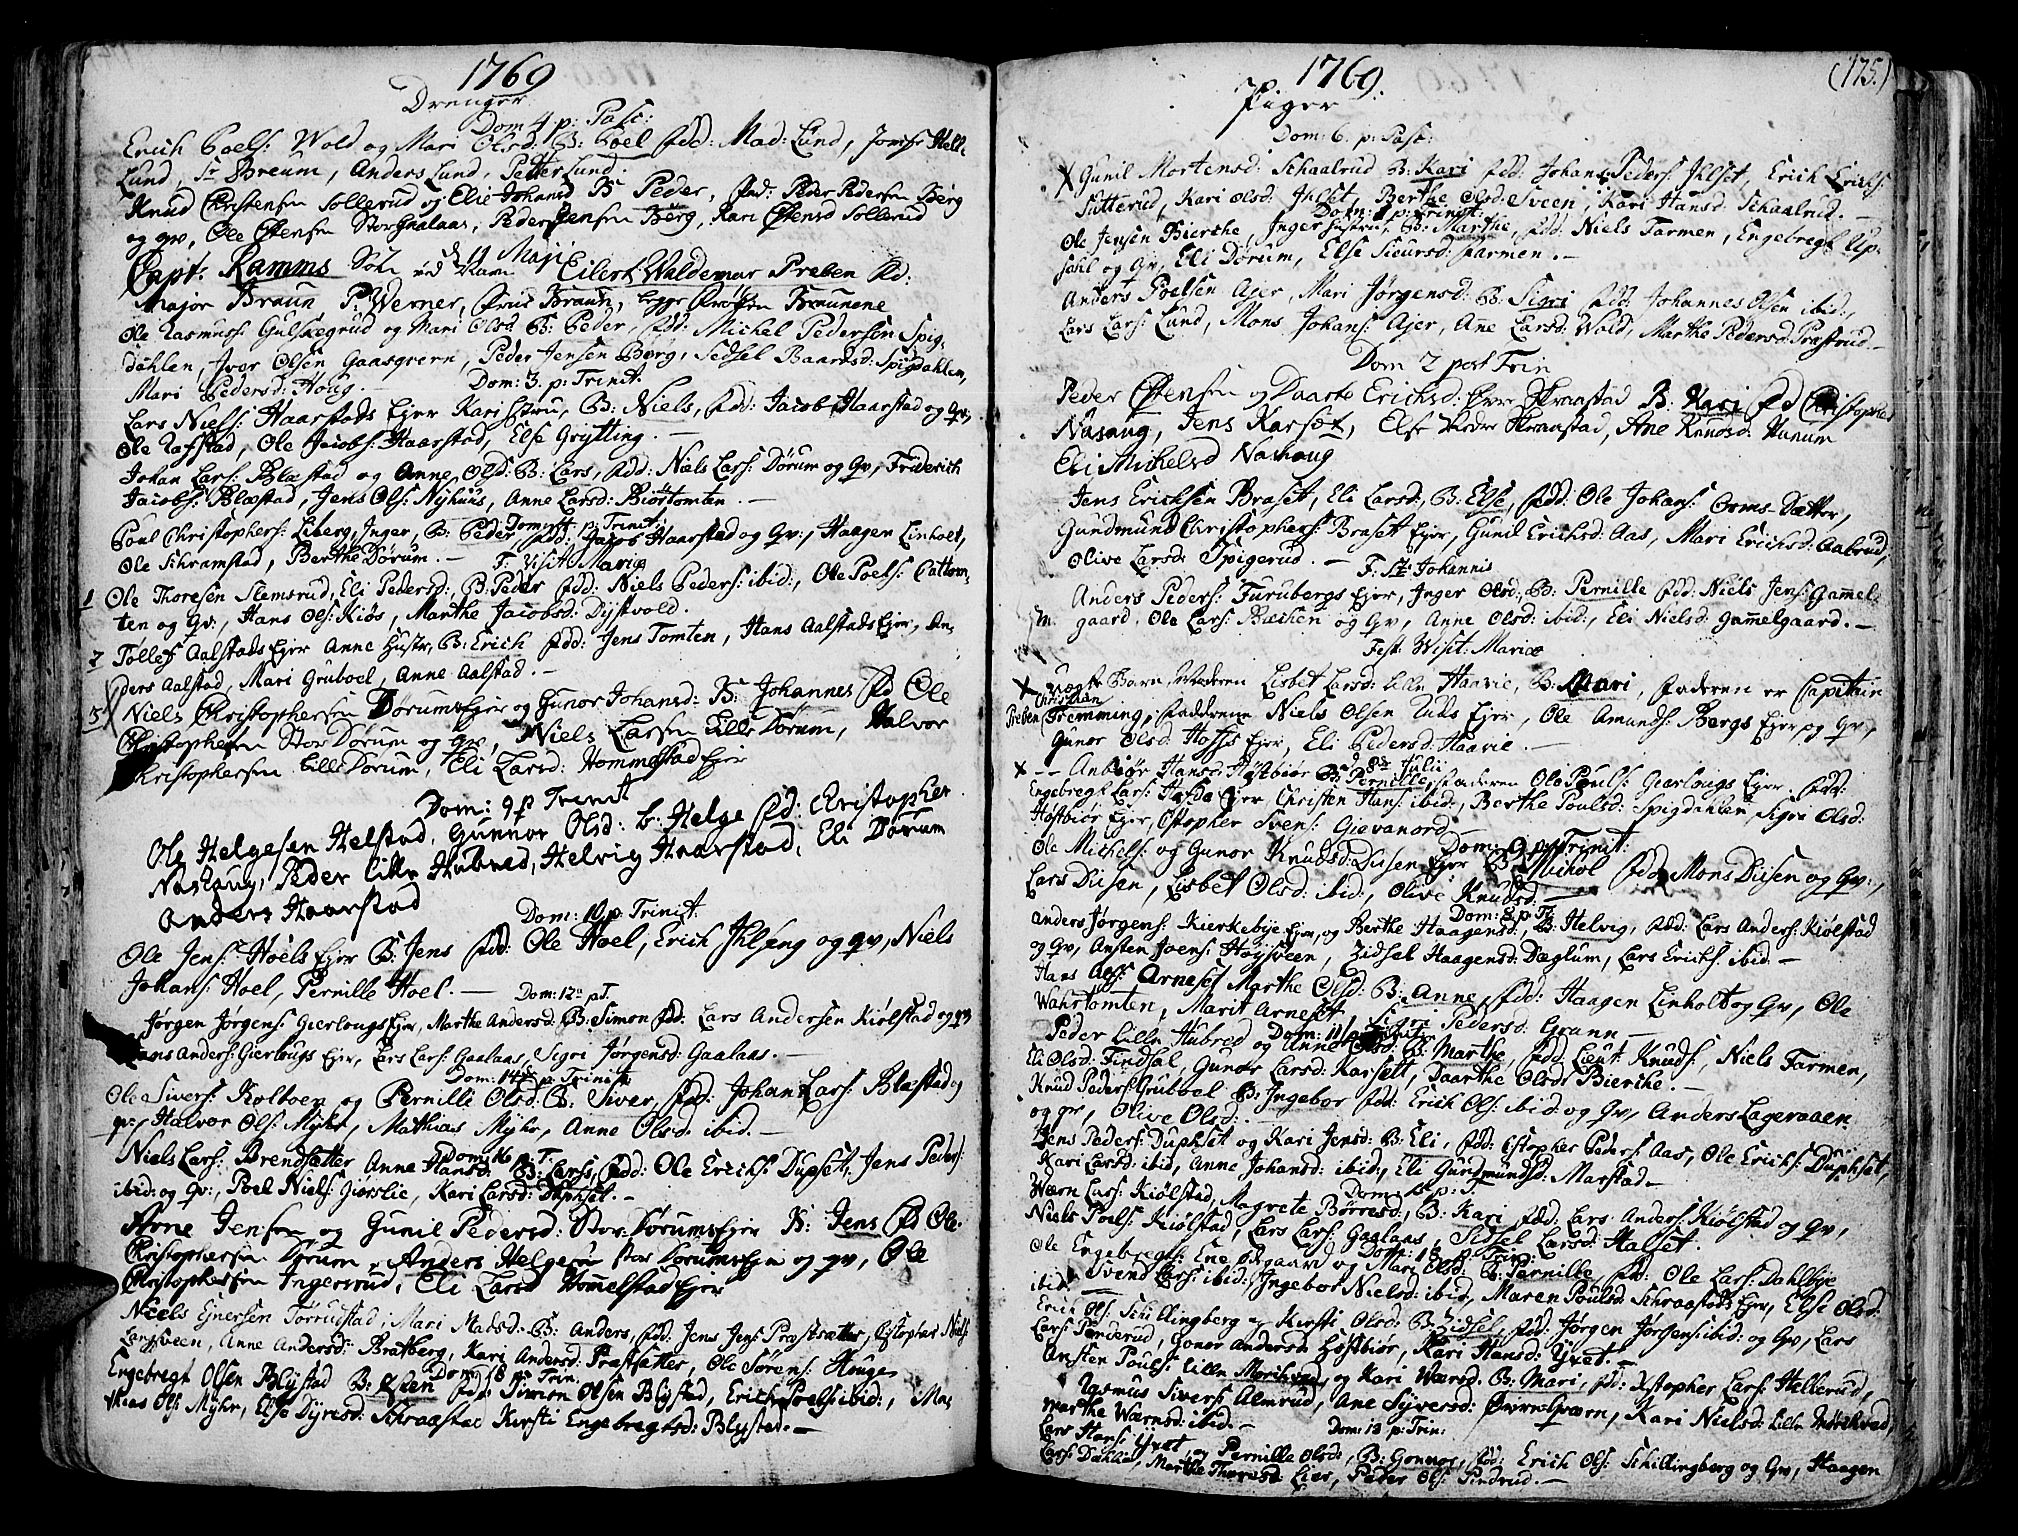 1769
Drenger
Dom 4 p: Pasc:
Erich Poels: Wold og Mari Olsd: B: Poel fdd: Mad: Lund, Jomfr Helle
Lund, Sr Breum, Anders Lund, Petter Lund.
Knud Christensen Sollerud og Elie Johansd B Peder, fad: Peder Pedersen Berg
og qv, Ole Østensen Stor Gaalaas, Peder Jensen Berg, Kari Østensd Sollerud
d 11 Maji
Capt: Ramms Søn ved Navn Eilert Waldemar Preben fd:
Major Braun P. Werner, Frue Braun,
Ole Rasmus: Gulskegrud og Mari Olsd B: Peder, fdd: Michel Pedersen Spig
dahlen, Iver Olsen Gaasqvern, Peder Jensen Børg, Sidsel Baardsd: Spigdahlen,
Mari Pedersd: Houg. — Dom: 3. p: Trinit.
Lars Niels: Haarstads Ejer Kari Hstru, B: Niels, fdd: Jacob Haarstad og Qv,
Ole Rafstad, Ole Jacobs: Haarstad, Else Grytting. —
Johan Lars: Blæstad og Anne Olsd: B: Lars, fdd: Niels Lars: Dørum og Qv, Friderich
Jacobs: Blæstad, Jens Ols: Nyhuus, Anne Larsd: Biørtomten. —
Dom 4 p: Trinit:
Poul Christophers: Liberg, Inger, B: Peder fdd: Jacob Haarstad og Qv:, Haagen Linholt,
Ole Schramstad, Berthe Dørum. — F: Visit Mariæ
1 Ole Thoresen Slemsrud, Eli Pedersd:, B: Peder fdd: Niels Peders: ibid:, Ole Poels: Cattom
ten og Qv:, Hans Ols: Kiøs, Marthe Jacobsd: Dystvold.
7 Tollef Aalstads Ejer Anne Hustr, B: Erich fdd: Jens Tomten, Hans Aalstads Ejer, An
ders Aalstad, Mari Gruboel, Anne Aalstad. —
5 Niels Christophersen Dørums Ejer og Gunor Johansd: B: Johannes fd Ole
Christophersen Stor Dørum og qv, Niels Larsen Lille Dørum, Halvor
Christophersen Lille Dørum, Eli Larsd: Hommelstad Ejer
Dom: 9 p Trinit
Ole Helgesen Helstad, Gunnor Olsd: b: Helge fd: Christopher
Nashaug, Peder lille Hubred, Helvig Haarstad, Eli Dørum
Anders Haarstad
Dom: 10 p. Trinit:
Ole Jens: Hoels Ejer B: Jens fdd: Ole Hoel, Erich Ihlseng og qv, Niels
Johans: Hoel, Pernille Hoel. — Dom: 12 p T.
Jørgen Jørgens: Gierlougs Ejer, Marthe Andersd: B: Simon fdd: Lars Andersen Kiølstad og qv
Hans Anders: Gierlougs Ejer, Lars Lars: Gaalaas, Sigri Jørgensd: Gaalaas. —
Dom: 14 p: Trinit:
Ole Sivers: Koltoen og Pernille Olsd: B: Siver, fdd: Johan Lars: Blæstad og
qv:, Halvor Ols: Myhr, Mathias Myhr, Anne Olsd: ibid. —
Dom 16 p T.
Niels Lars: Brendsætter Anne Hansd: B: Lars, fdd: Ole Erichs: Dupset, Jens Peders:
ibid: og Qv:, Poel Niels: Giørslie, Kari Larsd: Duphset. —
Arne Jensen og Gunil Pedersd: Stor Dørums Ejer B: Jens fd Ole
Christophersen Dørum, Anders Helgesen stor Dørums Ejer og qv, Ole
Christophersen Ingersrud, Eli Larsd Hommelstad Ejer
Niels Ejnersen Torrustad, Mari Matsd: B: Anders, fdd: Jens Jens: Præstsætter, Østopher Niels:
Langsveen, Anne Andersd: Bratberg, Kari Andersd: Præstsætter, Ole Sørens: Houge
Dom 18 p: Trin.
Engebregt Olsen Blystad B: Østen fdd: Simon Olsen Blystad, Erich Poels: ibid:, Ma
thias Ols: Myhr, Else Dyresd: Schraastad Kirsti Engebregtsd: Blystad. —
1769.
(175.)
Piger
Dom: 6. p: Pasc:
X Gunil Mortensd: Schaalrud B: Kari fdd: Johan Peders: Ihlset, Erich Erichs:
Sutterud, Kari Olsd: Ihlset, Berthe Olsd: Sveen, Kari Hansd: Schaalrud. —
Dom: 1 p: Trinit:
Ole Jensen Bierche, Inger Hustru, B: Marthe, fdd: Niels Farmen, Engebregt Up
sahl og Qv, Eli Dørum, Else Siversd: Farmen. —
Anders Poelsen Ajer, Mari Jørgensd: B: Sigri fdd: Johannes Olsen ibid:,
Lars Lars: Lund, Mons Johans: Ajer, Ane Larsd: Wold, Marthe Pedersd: Præstrud. —
Dom 2 post Trin
Peder Østensen og Daarte Erichsd: Øvre Skraastad B: Kari fd Christopher
Nashaug, Jens Karset, Else Nedre Skraastad, Ane Knudsd: Hunum
Eli Mickelsd Nashaug
Jens Erichsen Braset, Eli Larsd:, B: Else, fdd: Ole Johans: Orms-Sætter,
Gundmund Christophers: Braset Ejer, Gunil Erichsd: Aas, Mari Erichsd: Aabrud,
Olive Larsd: Spigerud. — F: St: Johannis
Anders Peders: Furubergs Ejer, Inger Olsd:, B: Pernille fdd: Niels Jens: Gammel
gaard, Ole Lars: Bæchen og Qv, Anne Olsd: ibid:, Eli Nielsd: Gammelgaard. —
Fest: Wisit: Mariæ
X uægte Barn, Moderen Lisbet Larsd: Lille Haavie, B: Mari, Faderen er Capitain
Christian
Preben Fremming, Fadderne Niels Olsen Ruds Ejer, Ole Amunds: Bergs Ejer og Qv,
Gunor Olsd: Hoffs Ejer, Eli Pedersd: Haavie. —
d 8de Julii
X — Anbiør Hansd: Høstbiør B: Pernille, Faderen Ole Pouls: Gierlougs Ejer. fdd:
Engebregt Lars: Ejer Christen Hans: ibid:, Berthe Poulsd: Spigdahlen, Sigri Olsd:
Høstbiør Ejer, Østopher Svens: Gievanord
Dom: 9 p: Trinit:
Ole Michels: og Gunor Knudsd: Diisen Ejer B: Michol fdd: Mons Diisen og Qv:,
Lars Diisen, Lisbet Olsd: ibid:, Olive Knudsd: —
Dom: 8 p: T.
Anders Jørgens: Kierkebye Ejer, og Berthe Haagensd:, B: Helvig, fdd: Lars Anders: Kiølstad
og Qv, Ansten Joens: Høysveen, Zidsel Haagensd: Dæglum, Lars Erichs: ibid: —
Hans Ols: Arneset Marthe Olsd: B: Anne, fdd: Haagen Linholt og Qv, Ole
Wahrtomten, Marit Arneset, Sigri Pedersd: Grann —
Dom: 11 p Trinit
Peder Lille Hubred og Anne Olsd: B: Marthe, fdd: Lieut: Knuds:, Niels Farmen,
Eli Olsd: Findsal, Gunor Larsd: Karsett, Daarthe Olsd: Bierche. —
Knud Peders: Gruboel B: Ingebor fdd: Erich Ols: ibid: og Qv, Anders Lageraaen
og qv, Olive Olsd: —
Jens Peders: Duphset og Kari Jensd: B: Eli, fdd: Østopher Peders: Aas, Ole Erichs: Duphset,
Kari Larsd: ibid, Anne Johansd: ibid:, Eli Gundmundsd: Marstad. —
Dom: 15 p: T.
Wærn Lars: Kiølstad, Magrete Børresd:, B: Kari fdd, Lars Anders: Kiølstad og Qv,
Niels Poels: Kiølstad, Lars Lars: Gaalaas, Sidsel Larsd: Halset.
Dom: 18 p. Trin:
Ole Engebregts: Ene ødegaard og Mari Olsd: B: Pernille, fdd: Ole Lars: Dahlbye
ibid: Svend Lars: ibid:, Ingebor Nielsd: ibid, Maren Poulsd: Schraastads Ejer, Else Olsd:
Erich Ols: Schillingberg og Kirsti Olsd: B: Zidsel, fdd: Jørgen Jørgens: ibid: og Qv, Lars
Lars: Pinderud, Gonor Andersd: Høstbiør, Kari Hansd: Yxet. —
Ansten Pouls: Lille Morchved og Kari Wærsd: B: Mari, fd: Xstopher Lars: Hellerud,
Rasmus Sivers: Almrud, Ane Syversd: Øvre Qværn, Kari Nielsd: Lille Mørchved,
Marthe Wærnsd: ibid: — Dom: 19 p: Trin:
Lars Hans: Yxet og Pernille Olsd:, B: Gonnor, fdd: Erich Ols: Schillingberg og Qv, Haagen
Lars: Dæhlie, Marthe Thoresd Lier, Peder Ols: Pindrud. —